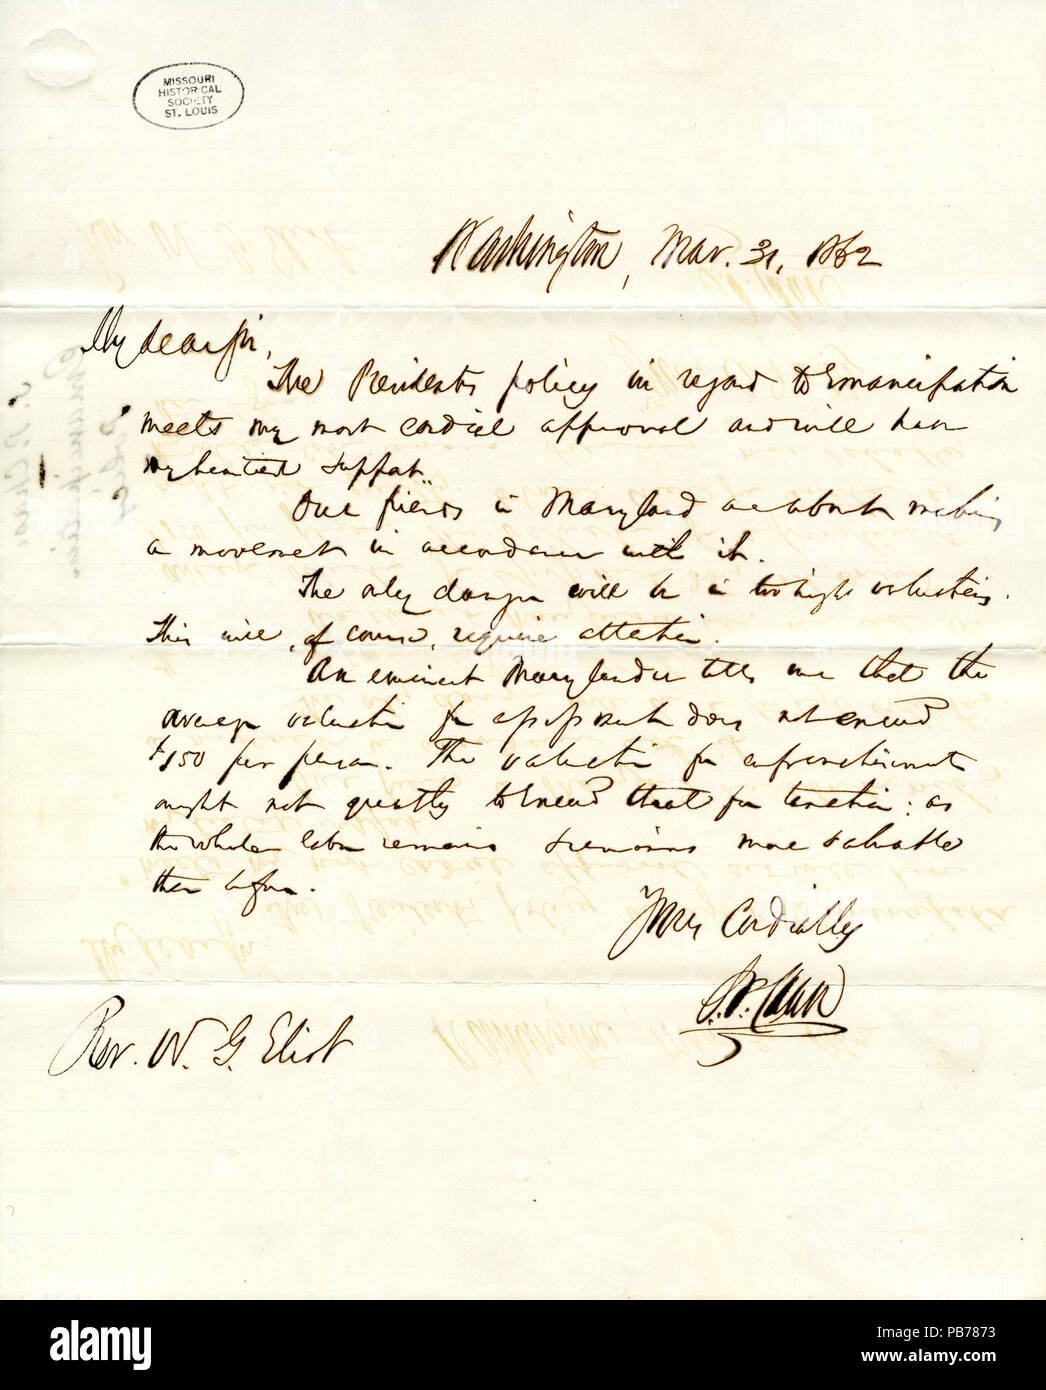 MISSOURI
HISTORICAL
SOCIETY
ST. LOUIS
Washington, Mar. 31, 1862
My dear Sir,
The President's policy in regard to Emancipation
meets my most cordial approval and will have
my heartiest support.
Our friends in Maryland are about making
a movement in accordance with it.
The only danger will be in too high valuations.
This will, of course, require attention.
An eminent Marylander tells me that the
average valuation for assessment does not exceed
$150 per person. The valuation for enfranchisement
ought not greatly to exceed that for taxation: as
the whole labor remains & remains more valuable
than before.
Yours Cordially
S. P. Chase
Rev. W. G. Eliot
alamy
Image ID: PB7873
www.alamy.com